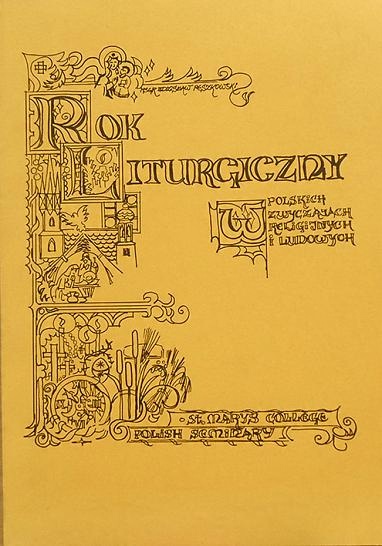 ZDZISŁAW PESZKOWSKI
ROK
LITURGICZNY
W POLSKICH
ZWYCZAJACH
RELIGIJNYCH
I LUDOWYCH
ST. MARY'S COLLEGE
POLISH SEMINARY